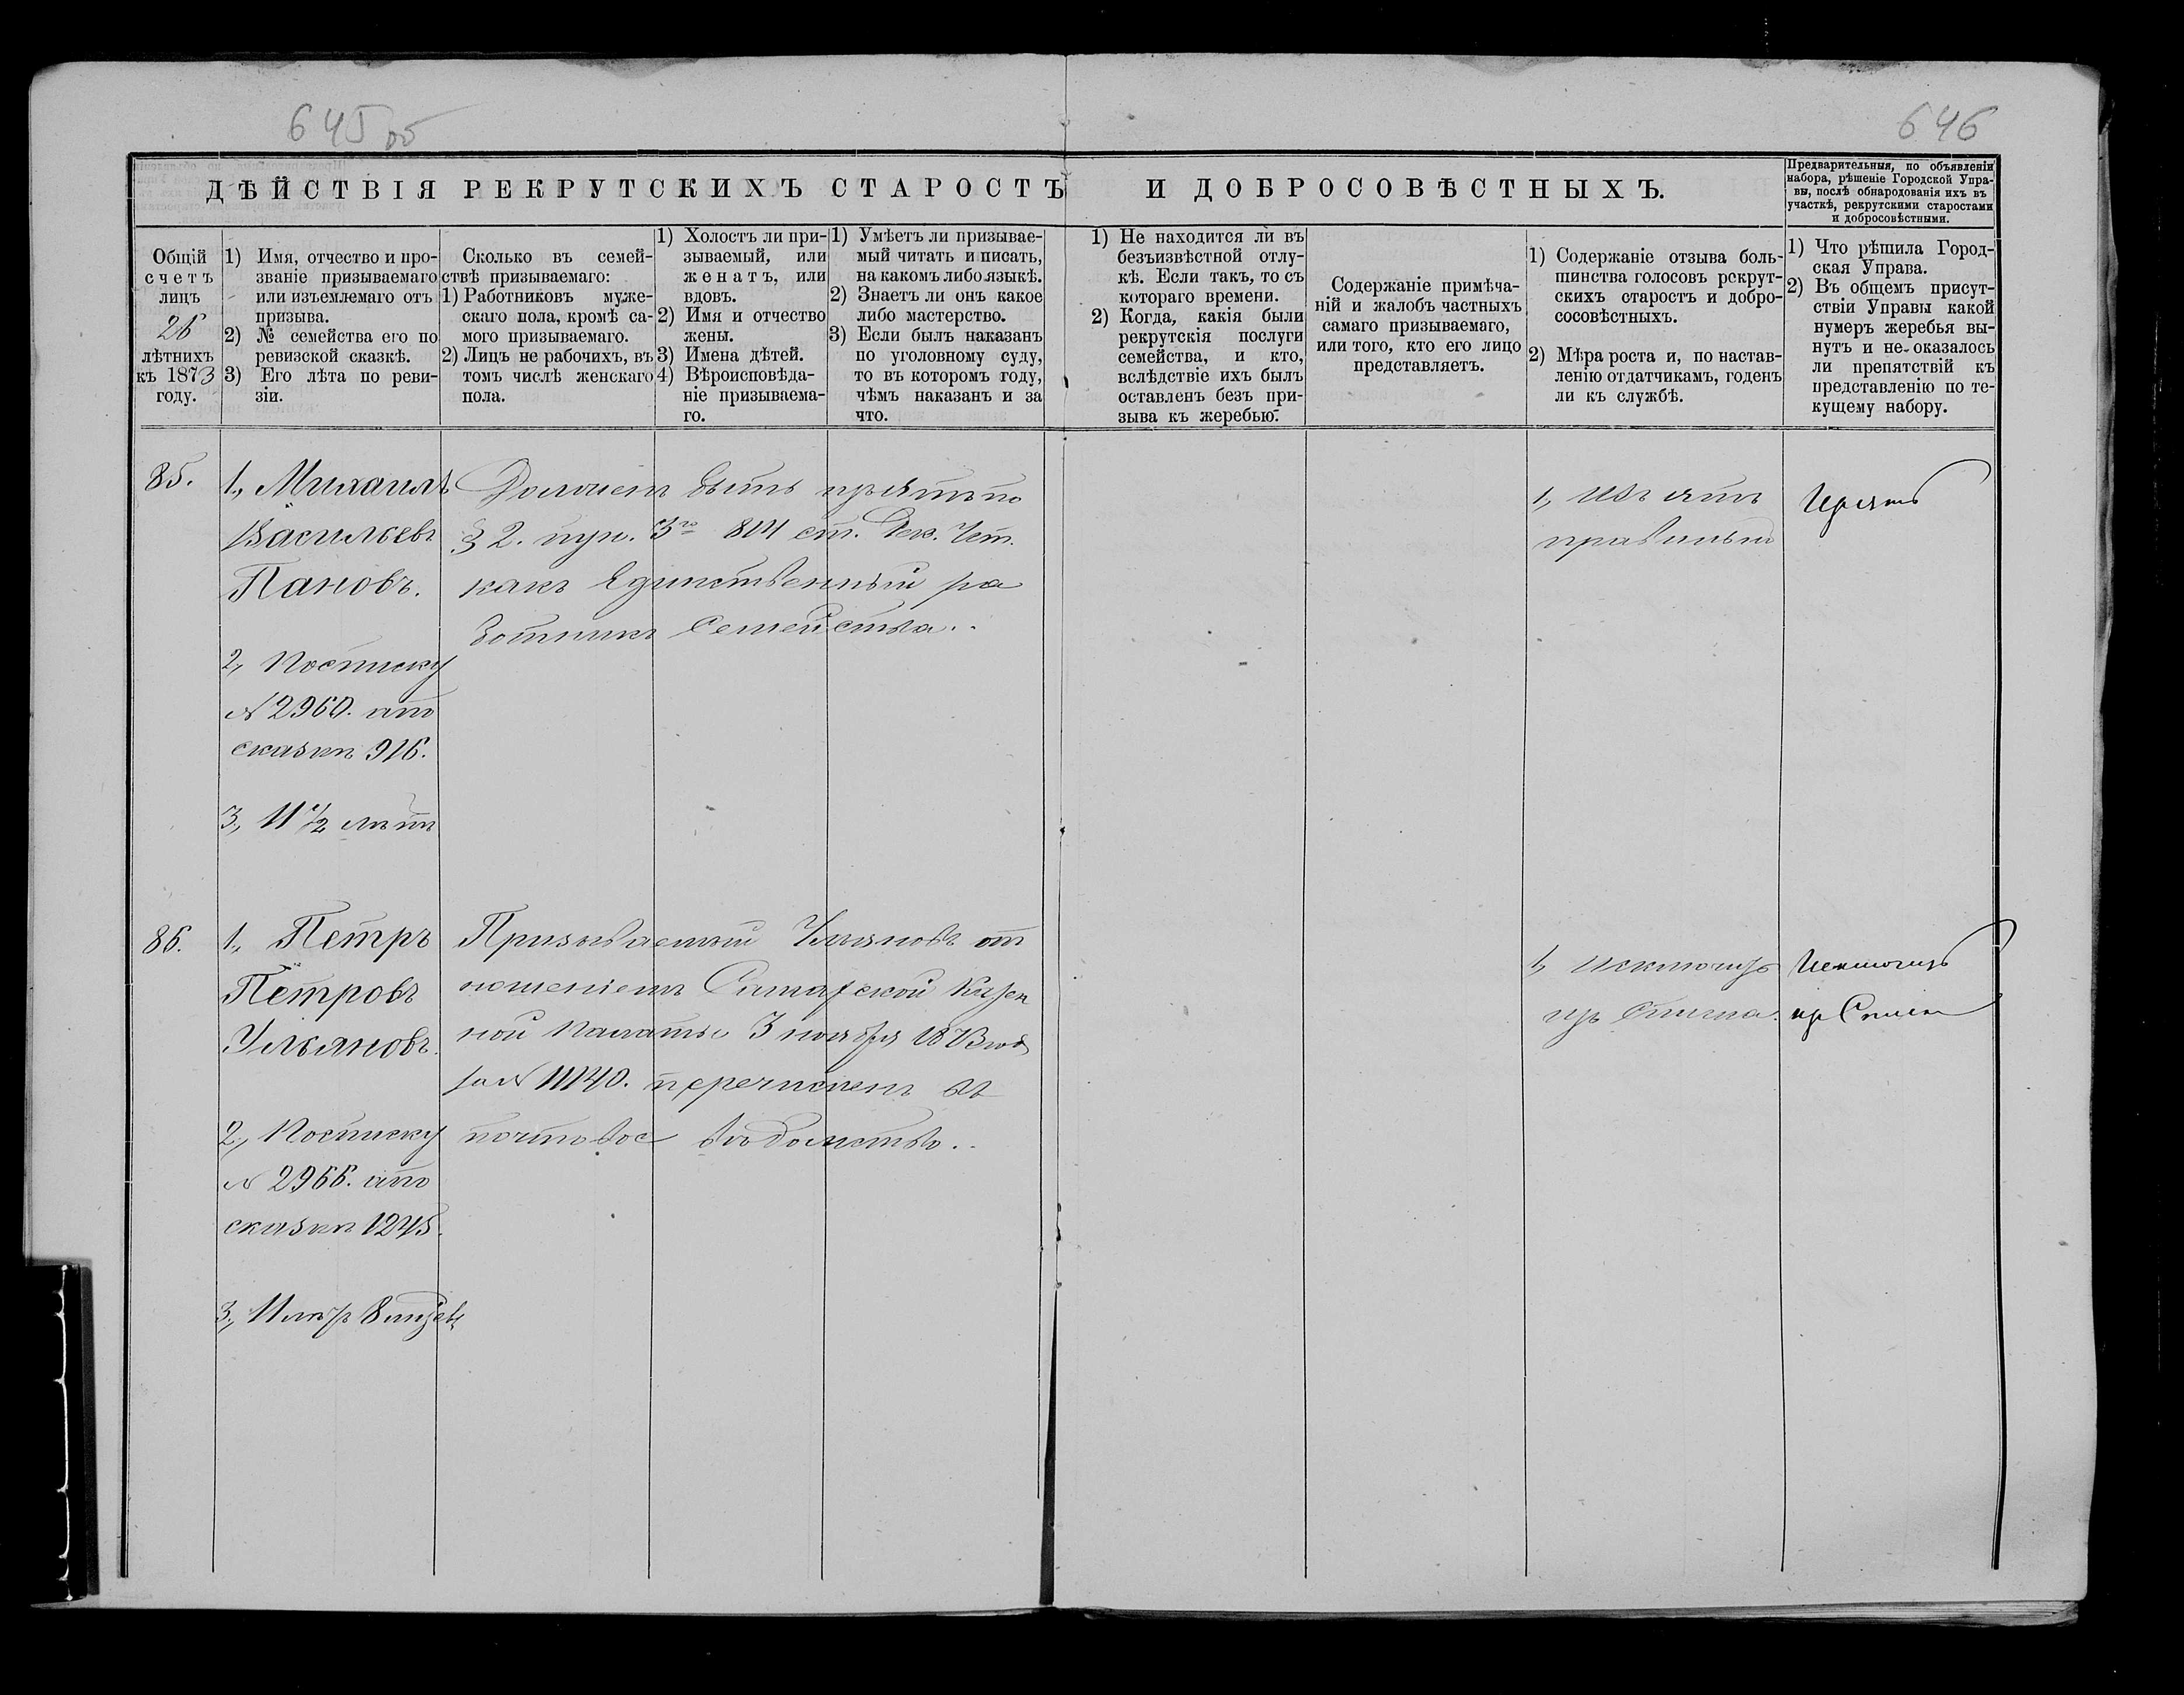 645 об
646
ДѢЙСТВІЯ РЕКРУТСКИХЪ СТАРОСТЪ И ДОБРОСОВѢСТНЫХЪ.
Предварительныя, по объявленіи
набора, рѣшеніе Городской Упра-
вы, послѣ обнародованія ихъ въ
участкѣ, рекрутскими старостами
и добросовѣстными.
Общій
счетъ
лицъ
26
лѣтнихъ
къ 1873
году.
1) Имя, отчество и про-
званіе призываемаго
или изъемлемаго отъ
призыва.
2) № семейства его по
ревизской сказкѣ.
3) Его лѣта по реви-
зіи.
Сколько въ семей-
ствѣ призываемаго:
1) Работниковъ муже-
скаго пола, кромѣ са-
мого призываемаго.
2) Лицъ не рабочихъ, въ
томъ числѣ женскаго
пола.
1) Холостъ ли при-
зываемый, или
женатъ, или
вдовъ.
2) Имя и отчество
жены.
3) Имена дѣтей.
4) Вѣроисповѣда-
ніе призываема-
го.
1) Умѣетъ ли призывае-
мый читать и писать,
на какомъ либо языкѣ.
2) Знаетъ ли онъ какое
либо мастерство.
3) Если былъ наказанъ
по уголовному суду,
то въ которомъ году,
чѣмъ наказанъ и за
что.
1) Не находится ли въ
безъизвѣстной отлу-
кѣ. Если такъ, то съ
котораго времени.
2) Когда, какія были
рекрутскія послуги
семейства, и кто,
вслѣдствіе ихъ былъ
оставленъ безъ при-
зыва къ жеребью.
Содержаніе примѣча-
ній и жалобъ частныхъ
самаго призываемаго,
или того, кто его лицо
представляетъ.
1) Содержаніе отзыва боль-
шинства голосовъ рекрут-
скихъ старостъ и добро-
сосовѣстныхъ.
2) Мѣра роста и, по настав-
ленію отдатчикамъ, годенъ
ли къ службѣ.
1) Что рѣшила Город-
ская Управа.
2) Въ общемъ присут-
ствіи Управы какой
нумеръ жеребья вы-
нутъ и не-оказалось
ли препятствій къ
представленію по те-
кущему набору.
85.
1., Михаилъ
Васильевъ
Пановъ.
2., По списку
№ 2960. а по
сказкѣ 916.
3., 11 1/2 лѣтъ
Долженъ быть изъятъ по
§ 2. пун. 3го 804 ст. Рек. Уст.
какъ Единственный ра
ботникъ Семейства..
1., Изъятъ
правильно
Изъять
86.
1., Петръ
Петровъ
Ульяновъ.
2., По списку
№ 2966. а по
сказкѣ 1245.
3., 11 лѣтъ 8 мѣсяц
Призываемый Ульяновъ от
ношеніемъ Самарской Казен
ной Палаты 3 ноября 1873 года
за № 11140. перечисленъ въ
почтовое вѣдомство..
1, исключить
изъ списка.
Исключить
изъ Списка